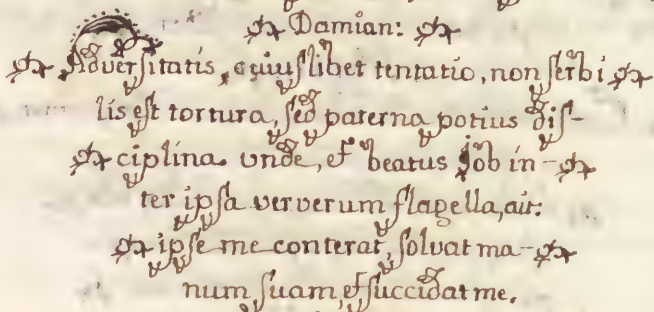 Damian:
Adversitatis, cuiuslibet tentatio, non serbi
lis est tortura, sed paterna potius dis-
ciplina. vnde, et beatus Job in-
ter ipsa ververum flagella, ait:
ipse me conterat, solvat ma-
num suam, et succidat me.